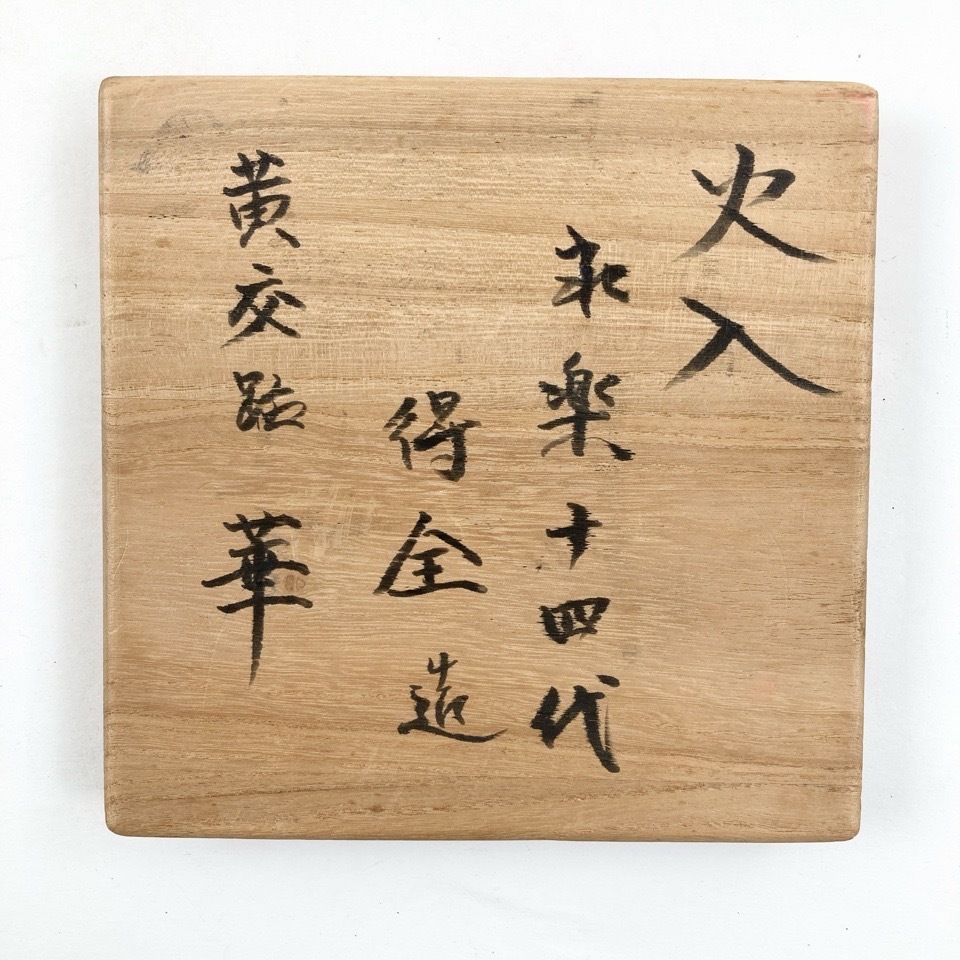 火入
永楽十四代
得全造
黄交趾 華